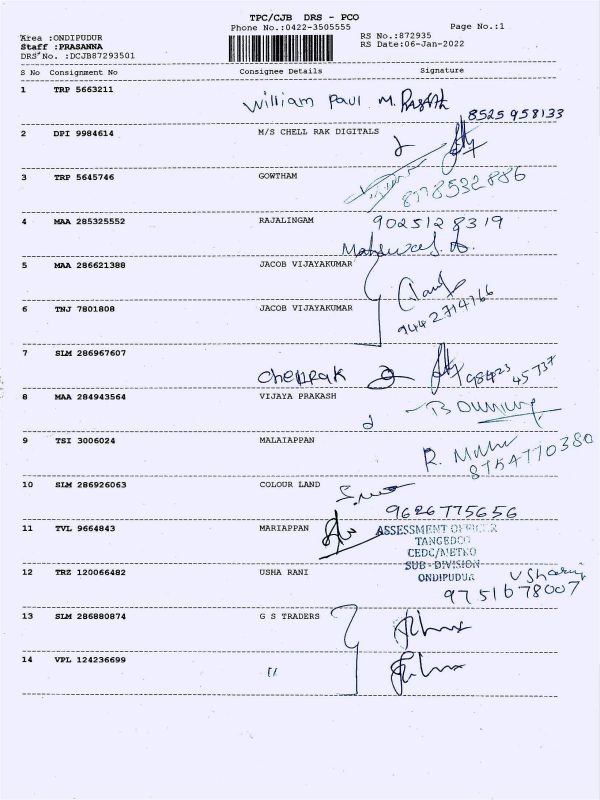 TPC/CJB DRS - PCO
Phone No.:0422-3505555 Page No.:1
Area :ONDIPUDUR RS No.:872935
Staff :PRASANNA RS Date:06-Jan-2022
DRS No. :DCJB87293501
S No Consignment No Consignee Details Signature
1 TRP 5663211
William Paul M.
8525958133
2 DPI 9984614 M/S CHELL RAK DIGITALS
3 TRP 5645746 GOWTHAM
8778532886
4 MAA 285325552 RAJALINGAM 9025128319
5 MAA 286621388 JACOB VIJAYAKUMAR
6 TNJ 7801808 JACOB VIJAYAKUMAR
9442714766
7 SLM 286967607
Chellrak 98423 45737
8 MAA 284943564 VIJAYA PRAKASH
9 TSI 3006024 MALAIAPPAN
8754770380
10 SLM 286926063 COLOUR LAND
9626775656
11 TVL 9664843 MARIAPPAN ASSESSMENT OFFICER
TANGEDCO
CEDC/METRO
SUB - DIVISION
12 TRZ 120066482 USHA RANI ONDIPUDUR
9751678007
13 SLM 286880874 G S TRADERS
14 VPL 124236699 "